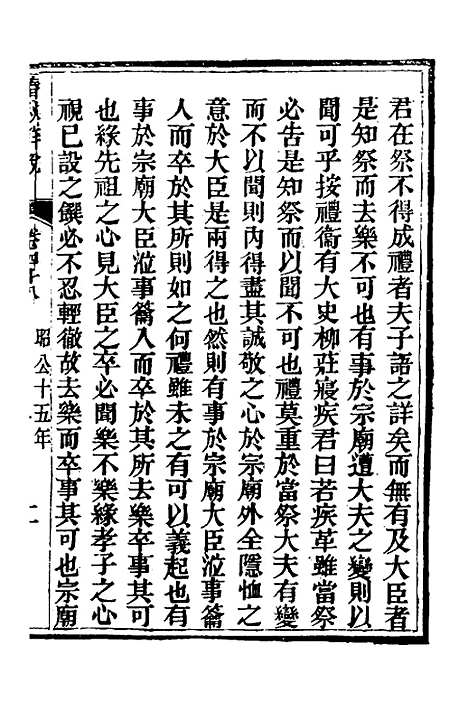 君在祭不得成禮者夫子語之詳矣而無有及大臣者
是知祭而去樂不可也有事於宗廟遭大夫之變則以
聞可乎按禮衞有大史柳莊寢疾君曰若疾革雖當祭
必告是知祭而以聞不可也禮莫重於當祭大夫有變
而不以聞則內得盡其誠敬之心於宗廟外全隱恤之
意於大臣是兩得之也然則有事於宗廟大臣涖事籥
人而卒於其所則如之何禮雖未之有可以義起也有
事於宗廟大臣涖事籥人而卒於其所去樂卒事其可
也緣先祖之心見大臣之卒必聞樂不樂緣孝子之心
視已設之饌必不忍輕徹故去樂而卒事其可也宗廟
昭公十五年